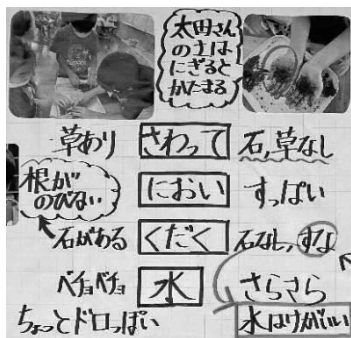 太田さん
のさは
にぎると
かたまる
草あり さわって 石,草なし
根が
のびない
におい すっぱい
石がある くだく 石なし,すな
ベチョベチョ 水 さらさら
ちょっとドロっぽい 水はけがいい